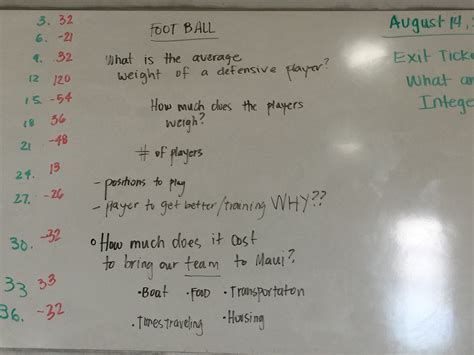 3. 32
6. -21
9. 32
12 120
15 -54
18 36
21 -48
24. 13
27. -26
30. -32
33 33
36. -32
FOOT BALL
What is the average
weight of a defensive player?
How much does the players
weigh?
# of players
- positions to play
- player to get better/training WHY??
How much does it cost
to bring our team to Maui?
• Boat • FOOD • Transportation
• Timestraveling • Housing
August 14,
Exit Ticke
What ar
Intege